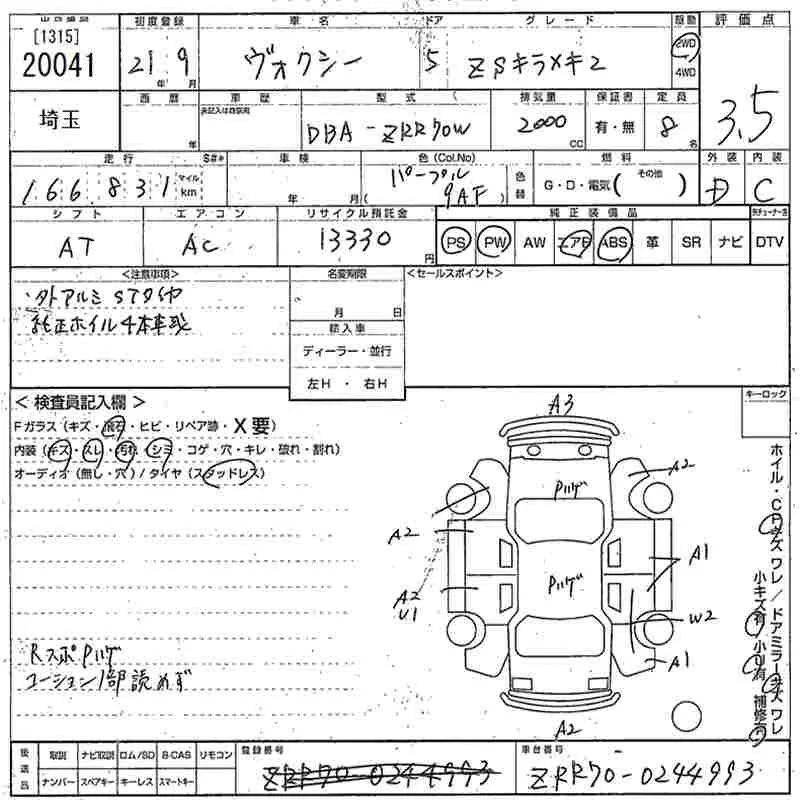 [1315]
初度登録 車名 ドア グレード 駆動 評価点
20041
21年 9月 ヴォクシー 5 ZSキラメキ2 2WD 4WD
3.5
西暦 車歴 型式 排気量 保証書 定員
未記入は自家用
埼玉 年 DBA-ZRR70W 2000cc 有・無 8名
走行 S#* 車検 色(Col.No) 燃料 外装 内装
166,831 マイル km 年 月 パープル 9AF 色替 G・D・電気( その他 ) D C
シフト エアコン リサイクル預託金 純正装備品
AT AC 13330円 PS PW AW エアB ABS 革 SR ナビ DTV
<注意事項> 名変期限 <セールスポイント>
タトアルミSTタイヤ
純正ホイル4本車載
月 日
輸入車
ディーラー・並行
左H ・ 右H
< 検査員記入欄 >
Fガラス(キズ・飛石・ヒビ・リペア跡・X要)
内装(キズ・スレ・汚れ・シミ・コゲ・穴・キレ・破れ・割れ)
オーディオ(無し・穴)/タイヤ(スタッドレス)
キーロック
A3
A2
Pハゲ
A2
A1
Pハゲ
A2
U1
W2
A1
A2
ホイル・Cキズ ワレ/ドアミラーキズ ワレ
小キズ有 小U有 補修有
RスポPハゲ
コーション1部読めず
後送品 取説 ナビ取説 ロム/SD B-CAS リモコン
ナンバー スペアキー キーレス スマートキー
登録番号 車台番号
ZRR70-0244993 ZRR70-0244993